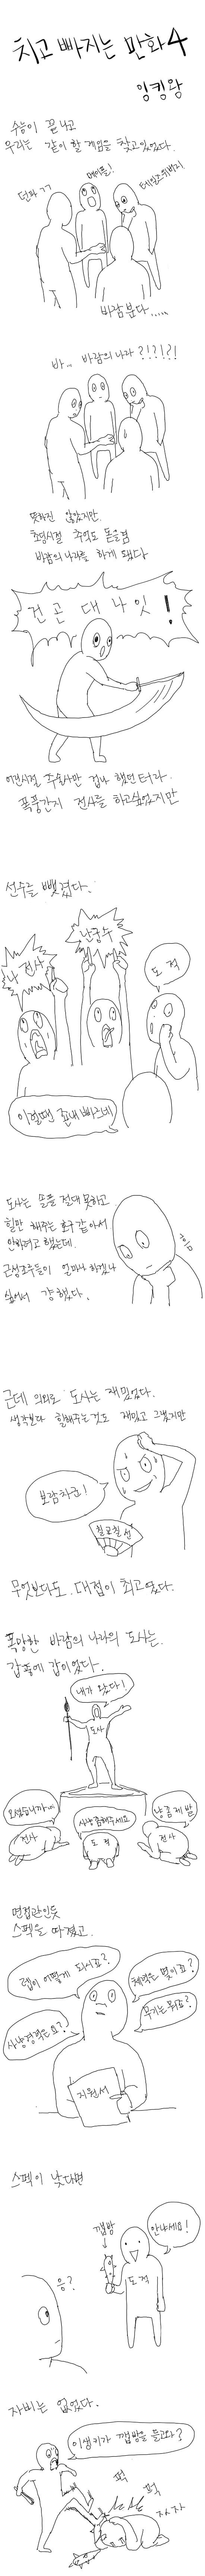 치고 빠지는 만화4
잉킹왕
수능이 끝나고
우리는 같이 할 게임을 찾고있었다.
던파 ㄱㄱ
메이플!
테일즈위버지
바람분다.....
바... 바람의 나라?!?!?!
뜻하진 않았지만.
초딩시절 추억도 돋을겸
바람의 나라를 하게 됐다
건곤대나잇!
어린시절 주술사만 겁나 했던터라.
폭풍간지 전사를 하고싶었지만
선수를 뺏겼다.
나 전사
난 궁수
도적
이럴땐 존내빠르네
도사는 솔플 절대 못하고
힐만 해주는 호구 같아서
안하려고 했는데.
근성조루들이 얼마나 하겠냐
싶어서 걍했다.
흐음
근데 의외로 도사는 재밌었다.
생각보다 힐해주는것도 재밌고 그랬지만
보람차군!
칠고칠선
무엇보다도. 대접이 최고였다.
폭망한 바람의 나라의 도사는.
갑중에 갑이었다.
내가 왔다!
도사
오셨습니까
사냥좀해주세요
냥좀제발
전사
도적
전사
면접관인듯
스펙을 따졌고.
렙이 어떻게 되시죠?
체력은 몇이죠?
사냥경력은요?
무기는 뭐죠?
지원서
스펙이 낮다면
깹방
안냐세요!
응?
도적
자비는 없었다.
이생키가 깹방을 들고와?
퍽
퍽
자자